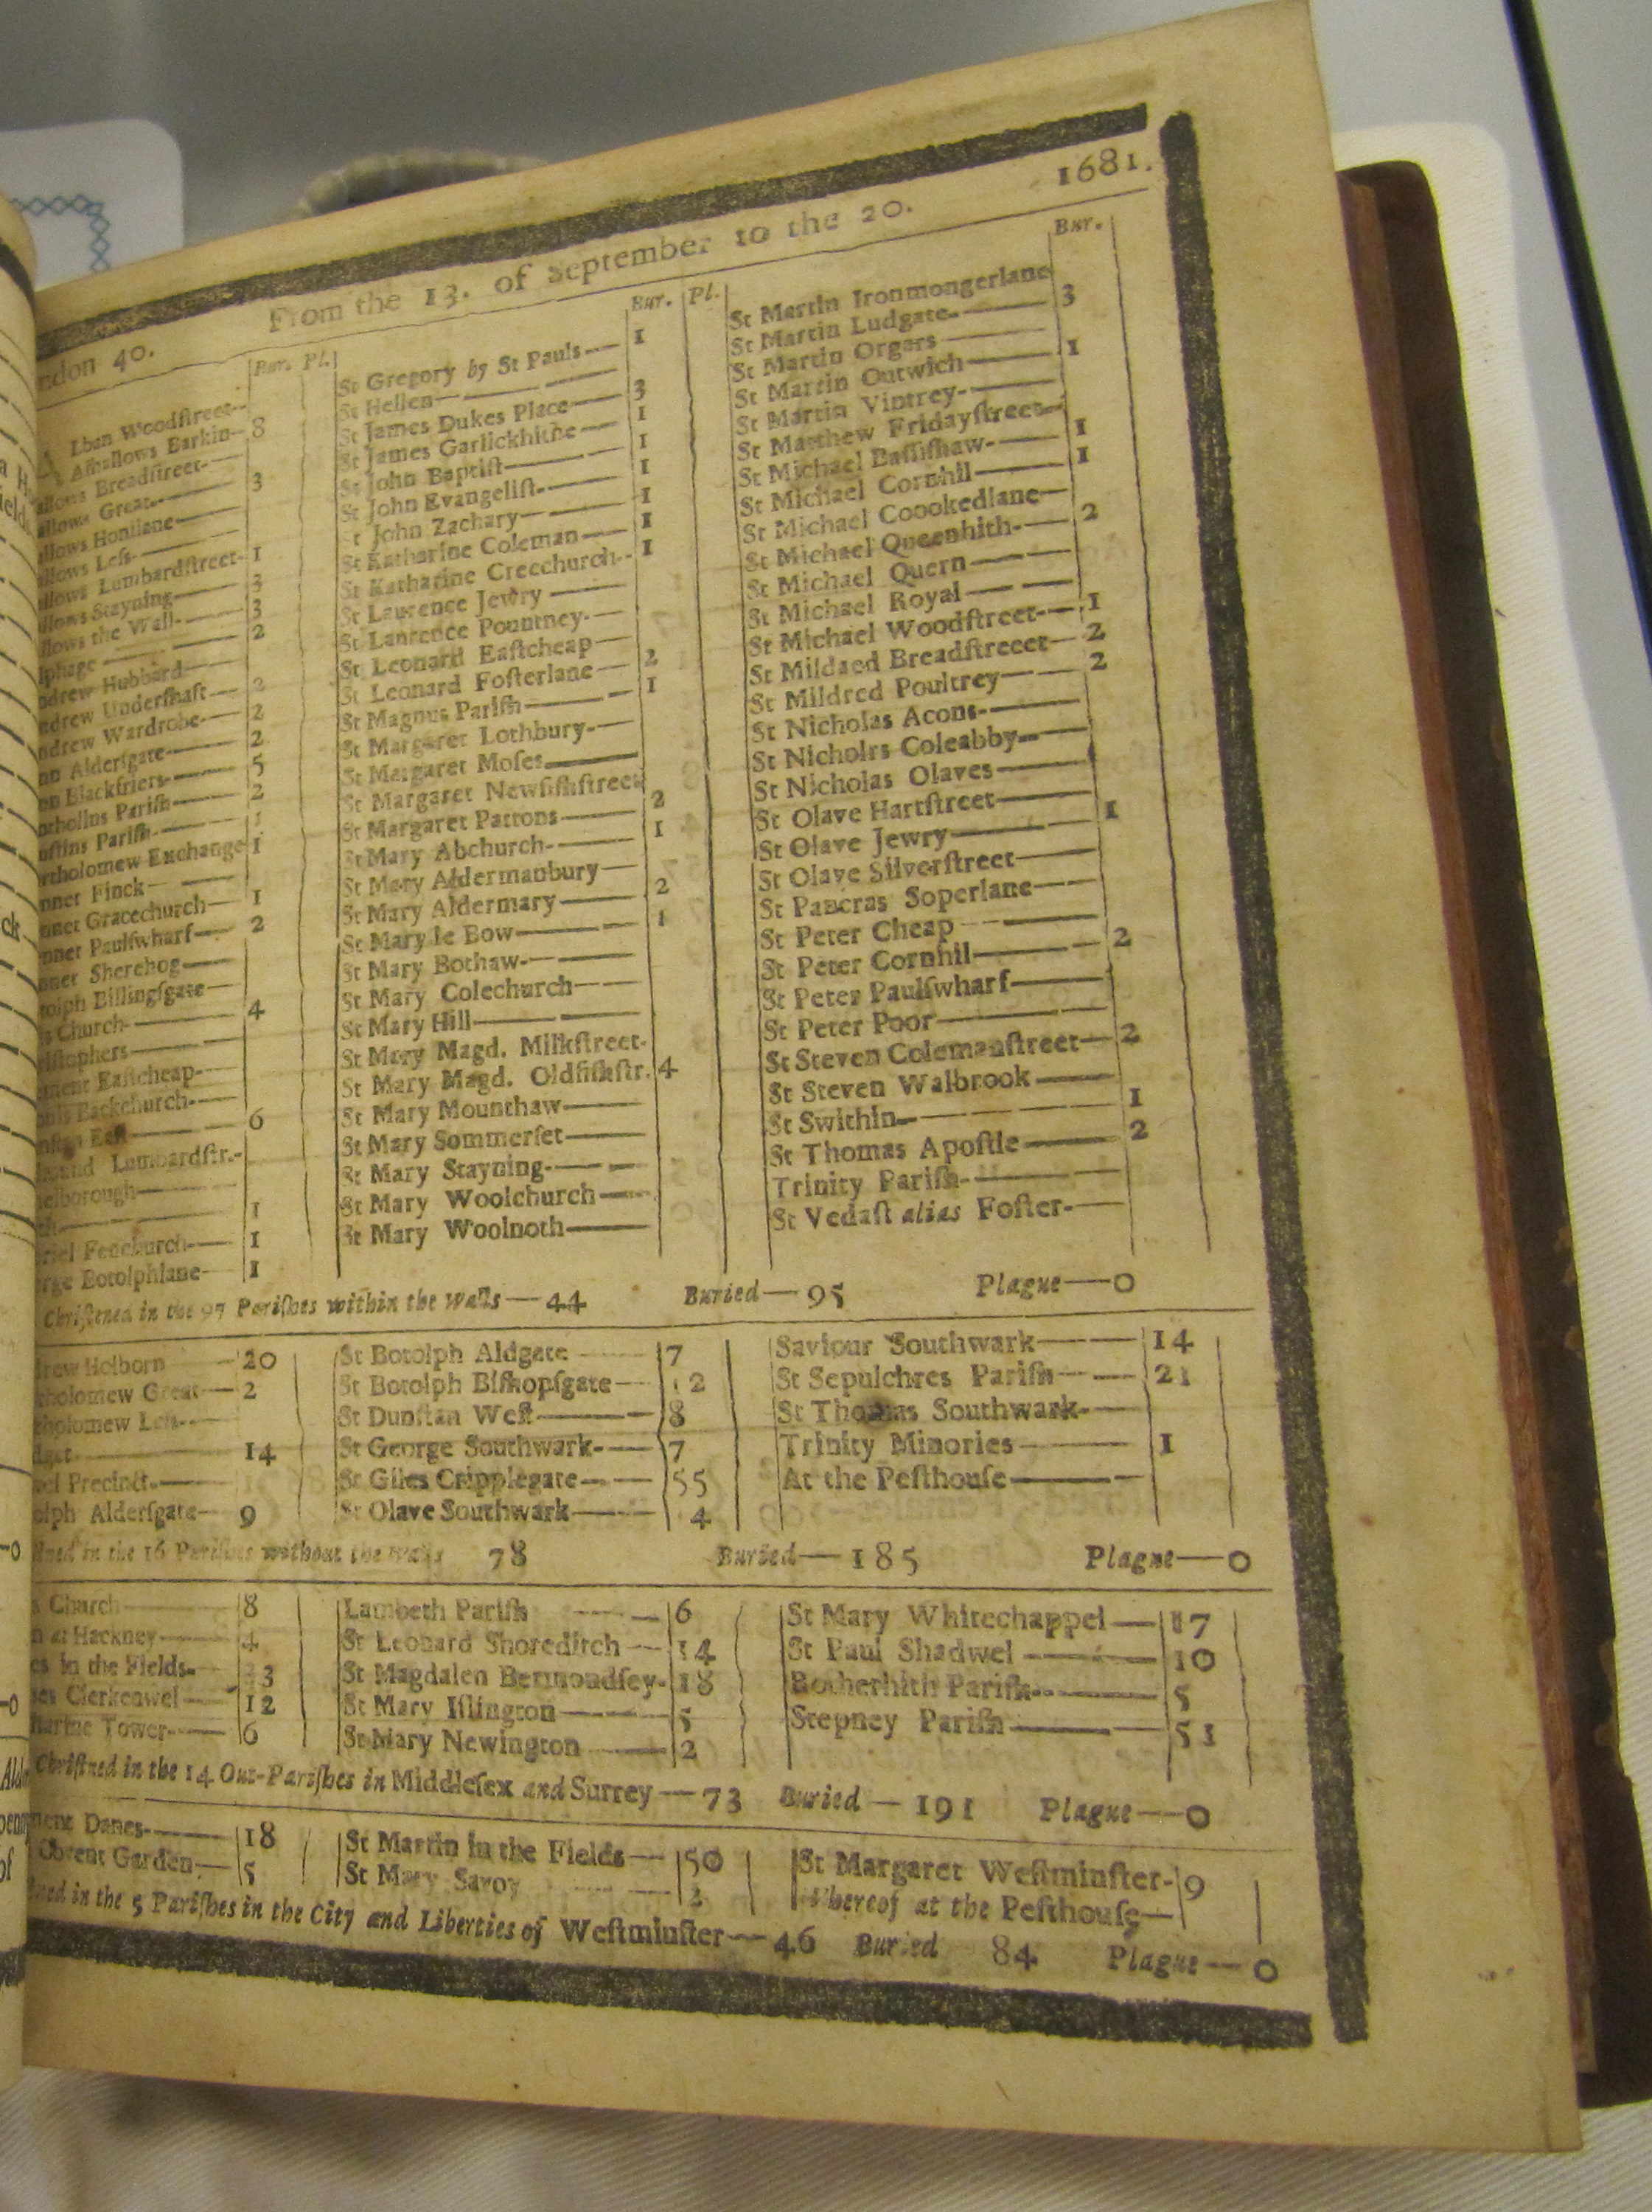 1681.
From the 13. of September to the 20.
ndon 40.
Bur. Pl.
lban Woodſtreet--
Alhallows Barkin-- 8
allows Breadſtreet-
allows Great- 3
allows Honilane
allows Leſs-
allows Lumbardſtreet- 1
llows Stayning 3
llows the Wall- 3
lphage 2
ndrew Hubbard
ndrew Underſhaft 2
ndrew Wardrobe- 2
nn Alderſgate 2
nn Blackfriers- 5
artholomew Exchange 1
nnet Finck
nnet Gracechurch 1
nnet Paulſwharf 2
nnet Sherehog
tolph Billingſgate
s Church- 4
riſtophers
ment Eaſtcheap-
nis Backchurch-
nſtan Eaſt 6
mund Lumbardſtr.-
elborough
th 1
riel Fenchurch- 1
rge Botolphlane 1
Bur. Pl.
St Gregory by St Pauls 1
St Hellen
St James Dukes Place 3
St James Garlickhithe 1
St John Baptiſt 1
St John Evangeliſt- 1
St John Zachary 1
St Katharine Coleman 1
St Katharine Creechurch-- 1
St Laurence Jewry
St Laurence Pountney-
St Leonard Eaſtcheap
St Leonard Foſterlane 2
St Magnus Pariſh 1
St Margaret Lothbury-
St Margaret Moſes
St Margaret Newfiſhſtreet
St Margaret Pattons 2
St Mary Abchurch- 1
St Mary Aldermanbury
St Mary Aldermary 2
St Mary le Bow 1
St Mary Bothaw-
St Mary Colechurch
St Mary Hill
St Mary Magd. Milkſtreet-
St Mary Magd. Oldfiſhſtr. 4
St Mary Mounthaw
St Mary Sommerſet
St Mary Stayning-
St Mary Woolchurch
St Mary Woolnoth
Bur.
St Martin Ironmongerlane
St Martin Ludgate- 3
St Martin Orgars
St Martin Outwich 1
St Martin Vintrey-
St Matthew Fridayſtreet-
St Michael Baſſiſhaw- 1
St Michael Cornhil 1
St Michael Coookedlane
St Michael Queenhith- 2
St Michael Quern
St Michael Royal
St Michael Woodſtreet 1
St Mildaed Breadſtreeet 2
St Mildred Poultrey 2
St Nicholas Acons-
St Nicholrs Coleabby
St Nicholas Olaves
St Olave Hartſtreet
St Olave Jewry 1
St Olave Silverſtreet
St Pancras Soperlane
St Peter Cheap
St Peter Cornhil 2
St Peter Paulſwharf
St Peter Poor
St Steven Colemanſtreet 2
St Steven Walbrook
St Swithin 1
St Thomas Apoſtle 2
Trinity Pariſh-
St Vedaſt alias Foſter-
Chriſtened in the 97 Pariſhes within the Walls — 44 Buried — 95 Plague — 0
drew Holborn 20
tholomew Great 2
tholomew Leſs
14
Precinct-
olph Alderſgate 9
St Botolph Aldgate 7
St Botolph Biſhopſgate 12
St Dunſtan Weſt 8
St George Southwark- 7
St Giles Cripplegate 55
St Olave Southwark 4
Saviour Southwark 14
St Sepulchres Pariſh 21
St Thomas Southwark-
Trinity Minories 1
At the Peſthouſe
in the 16 Pariſhes without the Walls 78 Buried — 185 Plague — 0
s Church 8
n at Hackney 4
es in the Fields- 33
mes Clerkenwel 12
harine Tower- 6
Lambeth Pariſh 6
St Leonard Shoreditch 14
St Magdalen Bermondſey- 18
St Mary Iſlington 5
St Mary Newington 2
St Mary Whitechappel 17
St Paul Shadwel 10
Rotherhith Pariſh- 5
Stepney Pariſh 51
Chriſtned in the 14 Out-Pariſhes in Middleſex and Surrey — 73 Buried — 191 Plague — 0
ment Danes- 18
Covent Garden 5
St Martin in the Fields 50
St Mary Savoy 2
St Margaret Weſtminſter- 9
Whereof at the Peſthouſe
in the 5 Pariſhes in the City and Liberties of Weſtminſter — 46 Buried 84 Plague — 0